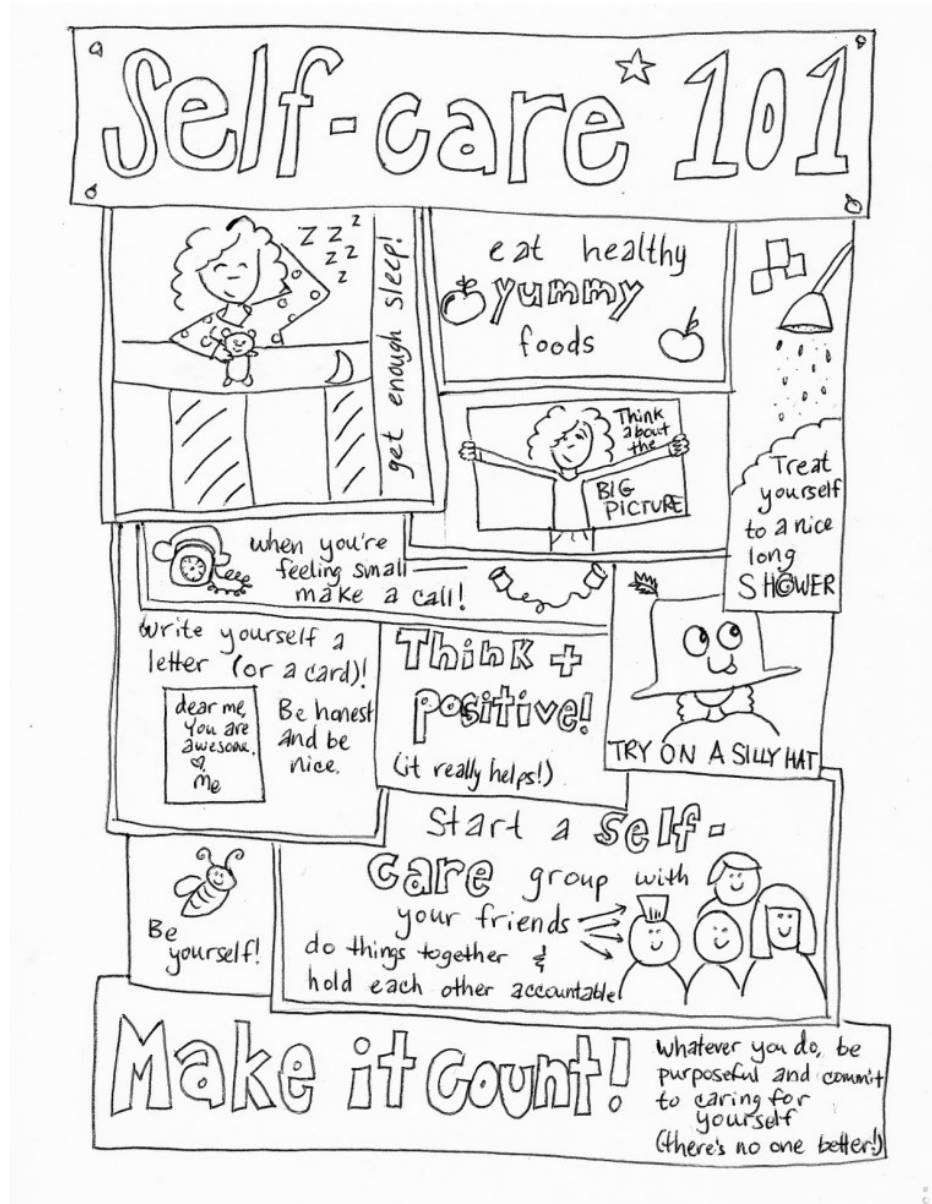 Self-care 101
z z z
z z
z
get enough sleep!
eat healthy
yummy
foods
Think
about
the
BIG
PICTURE
Treat
yourself
to a nice
long
SHOWER
when you're
feeling small
make a call!
Write yourself a
letter (or a card)!
dear me,
You are
awesome.
♡
me
Be honest
and be
nice.
Think +
positive!
(it really helps!)
TRY ON A SILLY HAT
Start a self-
care group with
your friends
do things together &
hold each other accountable
Be
yourself!
Make it count!
whatever you do, be
purposeful and commit
to caring for
yourself
(there's no one better!)